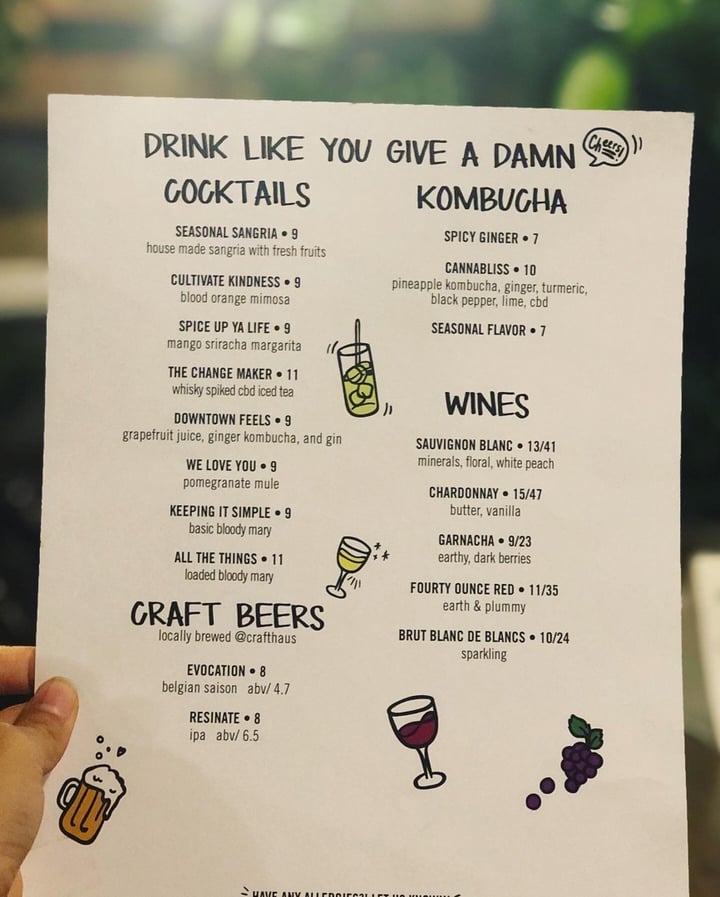 DRINK LIKE YOU GIVE A DAMN
Cheers!
COCKTAILS
SEASONAL SANGRIA • 9
house made sangria with fresh fruits
CULTIVATE KINDNESS • 9
blood orange mimosa
SPICE UP YA LIFE • 9
mango sriracha margarita
THE CHANGE MAKER • 11
whisky spiked cbd iced tea
DOWNTOWN FEELS • 9
grapefruit juice, ginger kombucha, and gin
WE LOVE YOU • 9
pomegranate mule
KEEPING IT SIMPLE • 9
basic bloody mary
ALL THE THINGS • 11
loaded bloody mary
CRAFT BEERS
locally brewed @crafthaus
EVOCATION • 8
belgian saison abv/ 4.7
RESINATE • 8
ipa abv/ 6.5
KOMBUCHA
SPICY GINGER • 7
CANNABLISS • 10
pineapple kombucha, ginger, turmeric,
black pepper, lime, cbd
SEASONAL FLAVOR • 7
WINES
SAUVIGNON BLANC • 13/41
minerals, floral, white peach
CHARDONNAY • 15/47
butter, vanilla
GARNACHA • 9/23
earthy, dark berries
FOURTY OUNCE RED • 11/35
earth & plummy
BRUT BLANC DE BLANCS • 10/24
sparkling
HAVE ANY ALLERGIES? LET US KNOW!